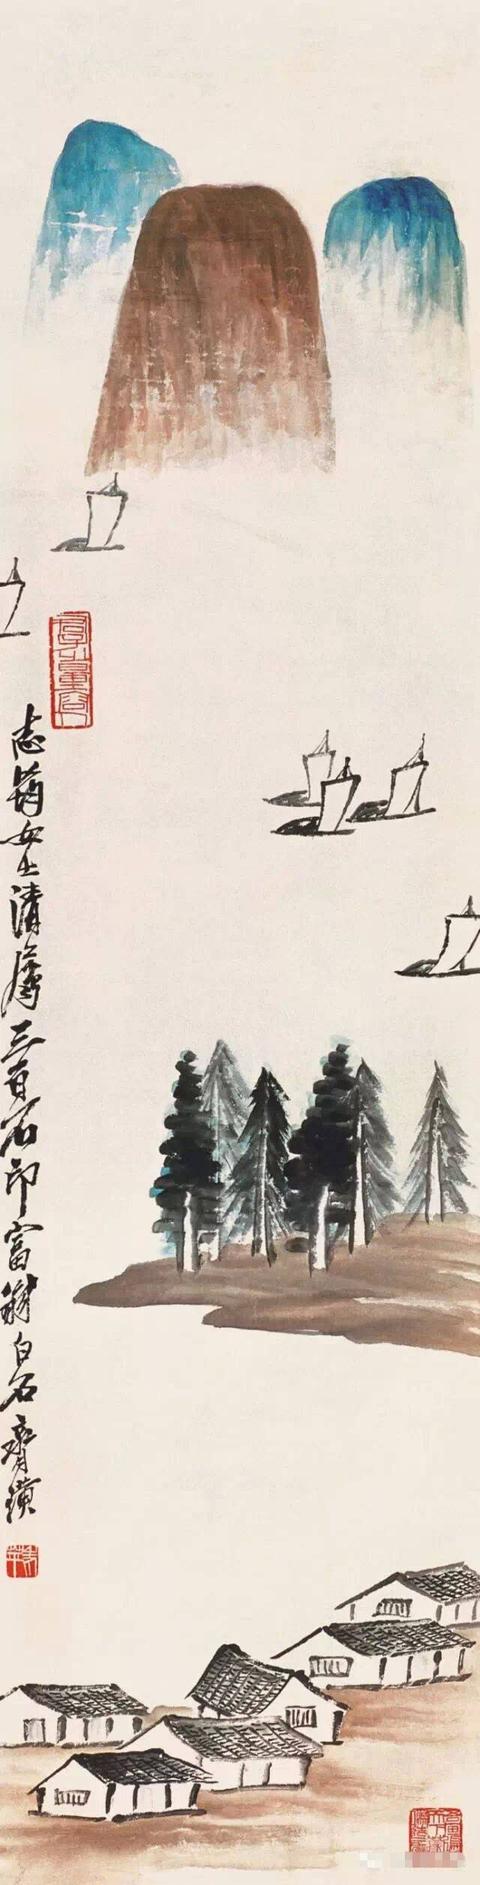 志筠女士清属三百石印富翁白石齊璜